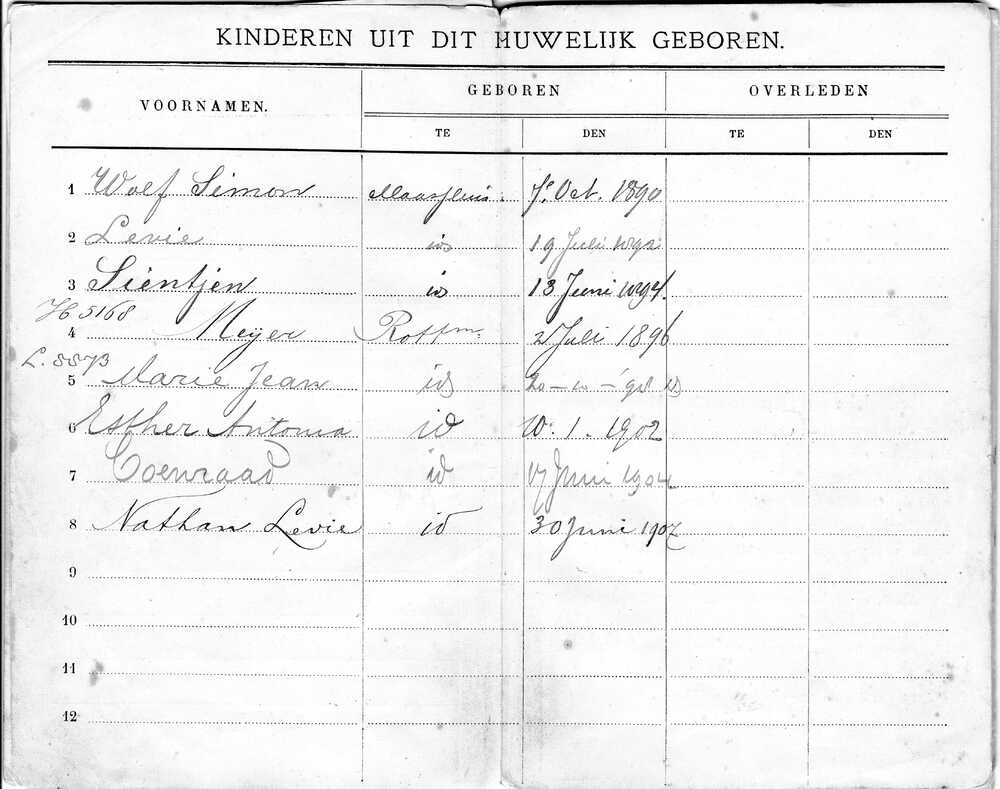 KINDEREN UIT DIT HUWELIJK GEBOREN.
VOORNAMEN. GEBOREN OVERLEDEN
TE DEN TE DEN
1 Wolf Simon Maassluis. Oct. 1890
2 Levie id 19 Juli 1892
3 Sientjen id 13 Juni 1894.
H 5168
4 Meyer Rottm. 2 Juli 1896
L. 8873
5 Marie Jean id
6 Esther Antonia id 10. 1. 1902
7 Coenraad id 17 Juni 1904
8 Nathan Levie id 30 Juni 1907
9
10
11
12